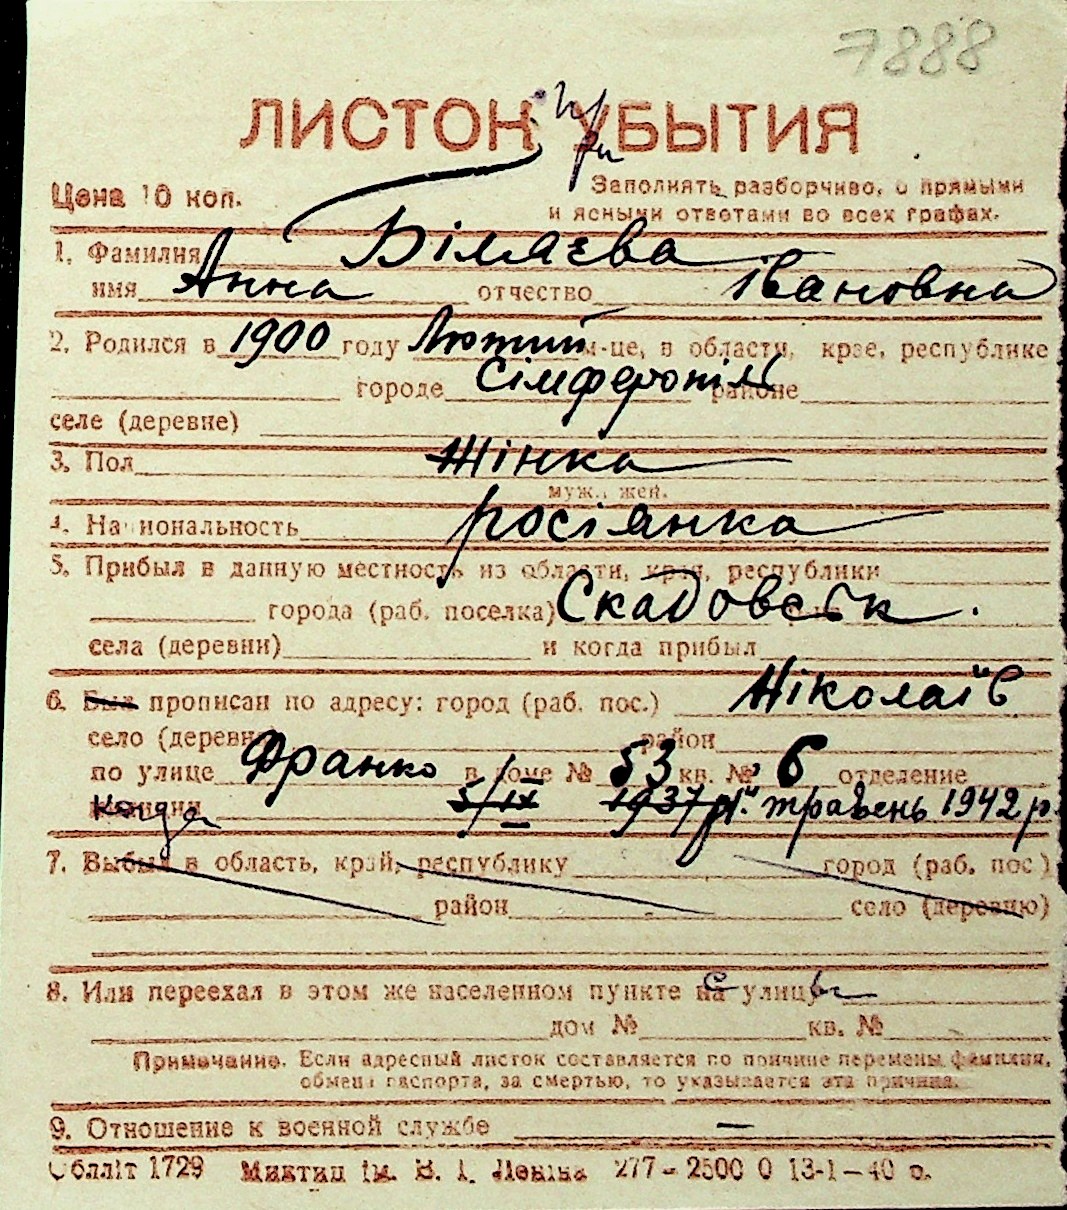 7888
ЛИСТОК при УБЫТИЯ
Цена 10 коп.
Заполнять разборчиво, с прямыми
и ясными ответами во всех графах.
1. Фамилия Біляєва
имя Анна отчество Івановна
2. Родился в 1900 году Лютий м-це, в области, крае, республике
городе Сімферопіль районе
селе (деревне)
3. Пол Жінка
муж., жен.
4. Национальность росіянка
5. Прибыл в данную местность из области, края, республики
города (раб. поселка) Скадовськ.
села (деревни) и когда прибыл
6. Был прописан по адресу: город (раб. пос.) Ніколаїв
село (деревн район
по улице Франко в доме № 53 кв. № 6 отделение
когда 5/IX 1937 р. травень 1942 р.
7. Выбыл в область, край, республику город (раб. пос.)
район село (деревню)
8. Или переехал в этом же населенном пункте с улицы
дом № кв. №
Примечание. Если адресный листок составляется по причине перемены фамилии,
обмена паспорта, за смертью, то указывается эта причина.
9. Отношение к военной службе —
Облліт 1729 Миктип ім. В. І. Леніна 277 - 2500 0 13-1-40 р.